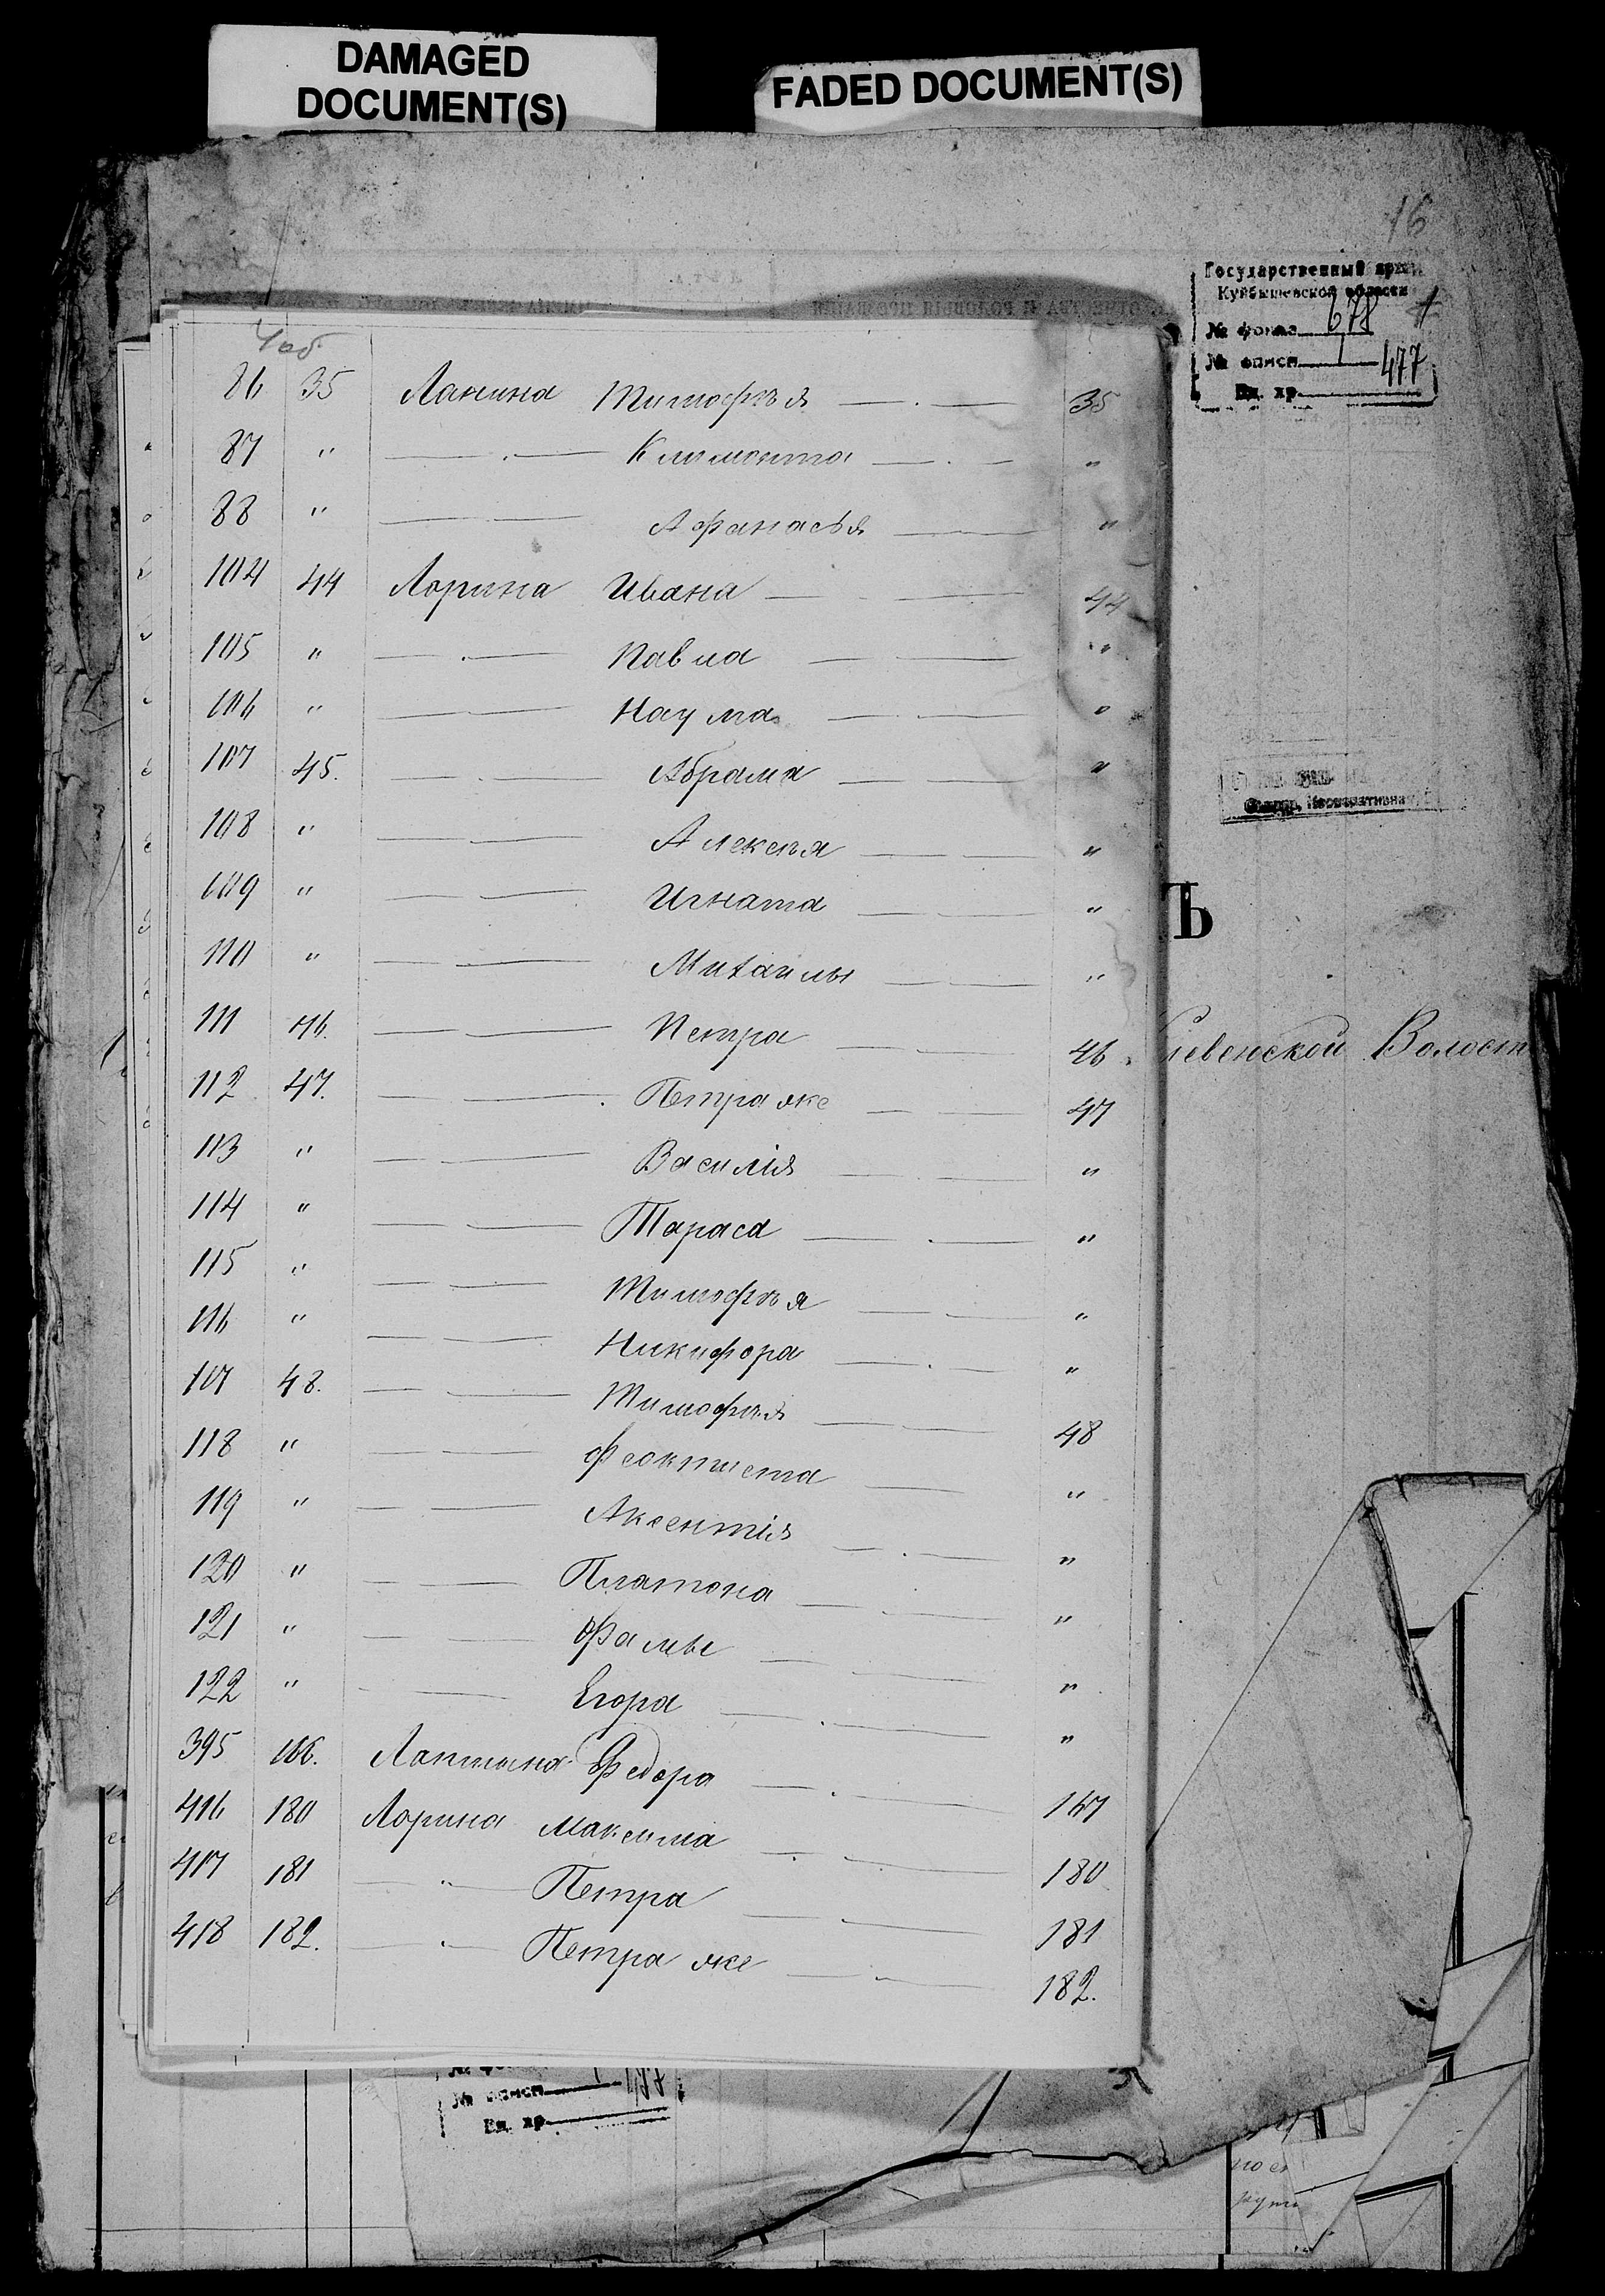 DAMAGED
DOCUMENT(S)
FADED DOCUMENT(S)
16
Государственный архив
Куйбышевской области
№ фонда 678
№ описи 1
Ед. хр. 477
4об
86 35 Ланина Тимофѣя — . — 35
87 " — . — Климонта — . — "
88 " — . — Афанасья — "
104 44 Ларина Ивана — — 44
105 " — . — Павла — — "
106 " — — Наума — — "
107 45. — . — Абрама — — "
108 " — — Алексѣя — — "
109 " — — Игната — — "
110 " — — Михайлы — — "
111 46. — — Петра — — 46
112 47. — — Петра же — — 47
113 " — — Василія — — "
114 " — — Тараса — . — "
115 " — — Тимофѣя — — "
116 " — — Никифора — . — "
117 48. — — Тимофѣя — — 48
118 " — — Феоктиста — — "
119 " — — Аксентія — . — "
120 " — — Платона — — "
121 " — — Фомы — — "
122 " — — Егора — . — "
395 166. Лапшина Федора — . — 167
416 180 Ларина Максима — . — 180
417 181 — " — Петра — — 181
418 182. — " — Петра же — — 182.
Ъ
Волост
№ описи 1
Ед. хр.